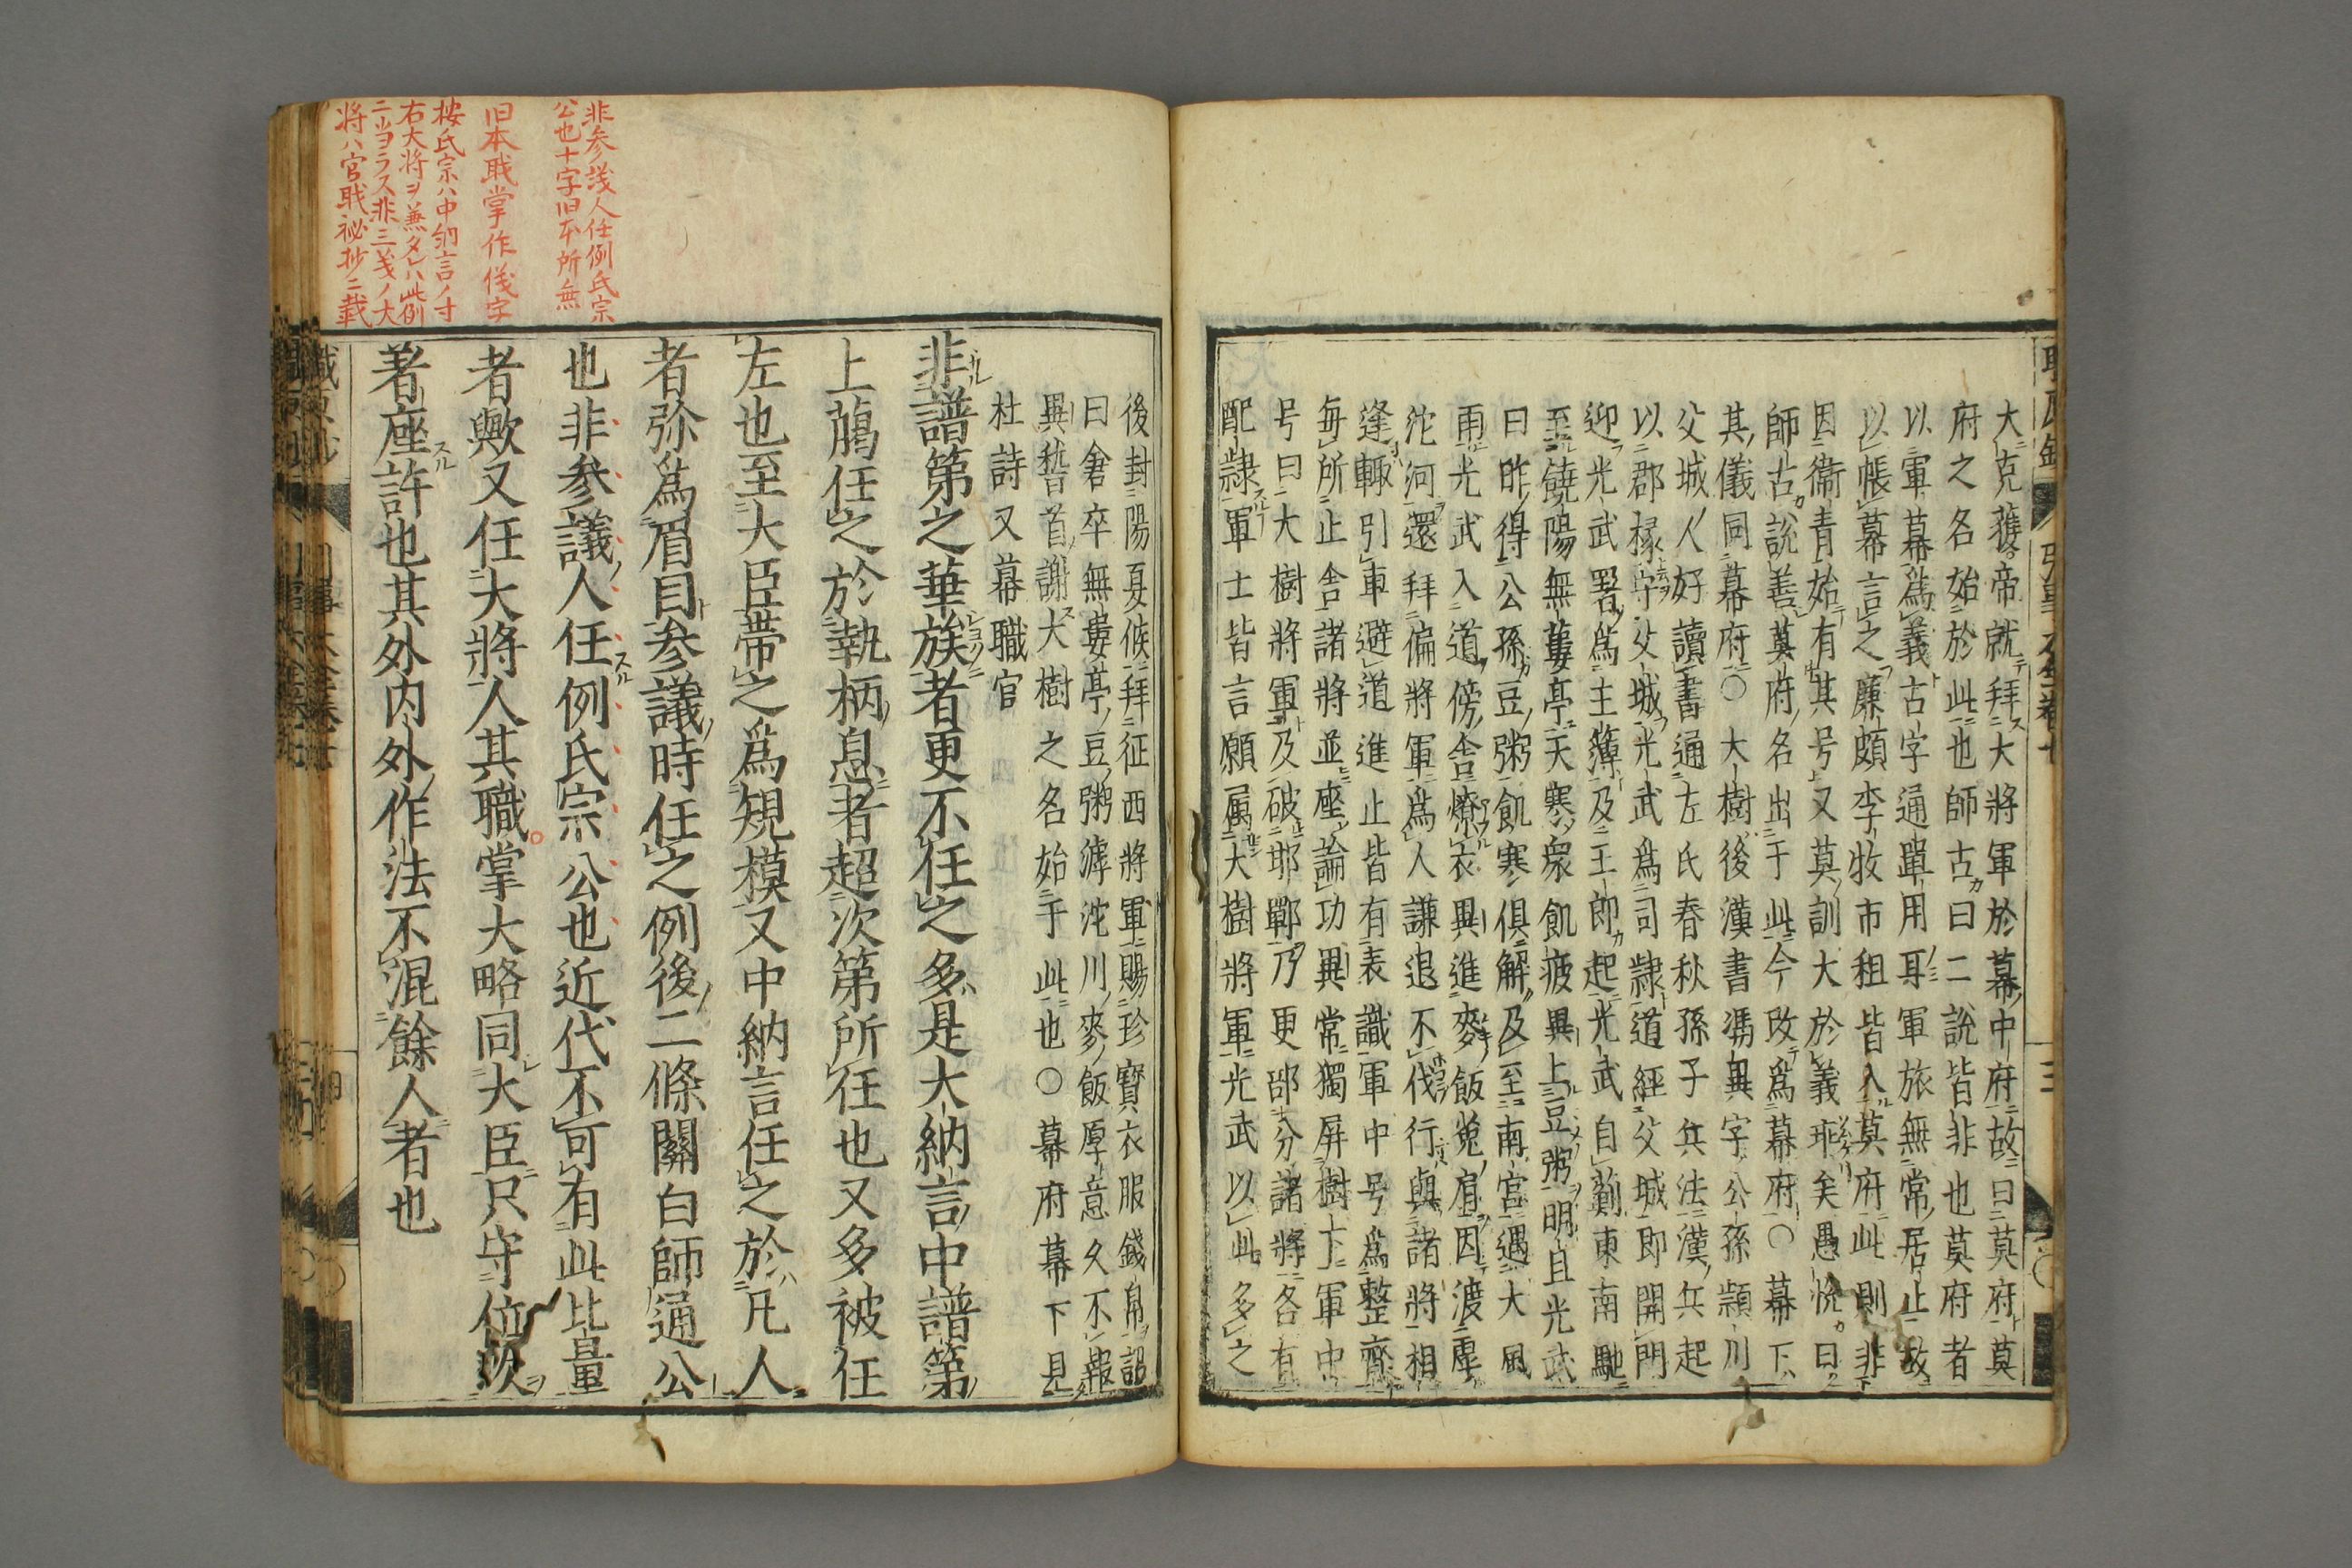 大克獲帝就拜大將軍於幕中府故曰莫府莫
府之名始於此也師古曰二說皆非也莫府者
以軍幕爲義古字通單用耳軍旅無常居止故
以帳幕言之廉頗李牧市租皆入莫府此則非
因衞青始有其号又莫訓大於義乖矣愚悦曰
師古說善莫府名出于此今改爲幕府〇幕下
其儀同幕府〇大樹後漢書馮異字公孫潁川
父城人好讀書通左氏春秋孫子兵法漢兵起
以郡掾守父城光武爲司隷道經父城即開門
迎光武署爲主簿及王郎起光武自薊東南馳
至饒陽無蔞亭天寒衆飢疲異上豆粥明旦光武
曰昨得公孫豆粥飢寒俱解及至南宮遇大風
雨光武入道傍舎燎衣異進麥飯莵肩因渡虖
沱河還拜偏將軍爲人謙退不伐行與諸將相
逢輙引車避道進止皆有表識軍中号爲整齊
毎所止舎諸將並座論功異常獨屏樹下軍中
号曰大樹將軍及破邯鄲乃更部分諸將各有
配隷軍士皆言願属大樹將軍光武以此多之
後封陽夏候拜征西將軍賜珍寶衣服錢帛詔
曰倉卒無蔞亭豆粥滹沱川麥飯厚意久不報
異稽首謝大樹之名始于此也〇幕府幕下見
杜詩又幕職官
非譜第之華族者更不任之多是大納言中譜第
上﨟任之於執柄息者超次第所任也又多被任
左也至大臣帶之爲規模又中納言任之於凡人
者弥爲眉目参議時任之例後二條關白師通公
也非参議人任例氏宗公也近代不可有此比量
者歟又任大將人其職掌大略同大臣只守位次
著座許也其外内外作法不混餘人者也
非参議人任例氏宗
公也十字旧本所無
旧本職掌作儀字
按氏宗ハ中納言ノ寸
右大将ヲ兼タレハ此例
ニ当ラス非三義ノ大
将ハ官職祕抄ニ載